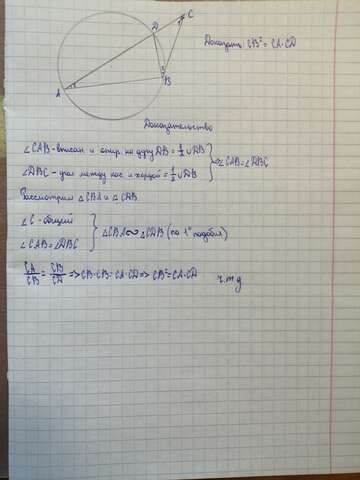 D
C
Доказать CB² = CA·CD
B
A
Доказательство
∠CAB - вписан и опир. на дугу DB = ½ ∪DB
∠DBC - угол между кас и хордой = ½ ∪DB
} => ∠CAB = ∠DBC
Рассмотрим △CBA и △CDB
∠C - общий
∠CAB = ∠DBC
} △CBA ∾ △CDB (по 1ᵒ подобия)
CA/CB = CB/CD => CB·CB = CA·CD => CB² = CA·CD
ч.т.д